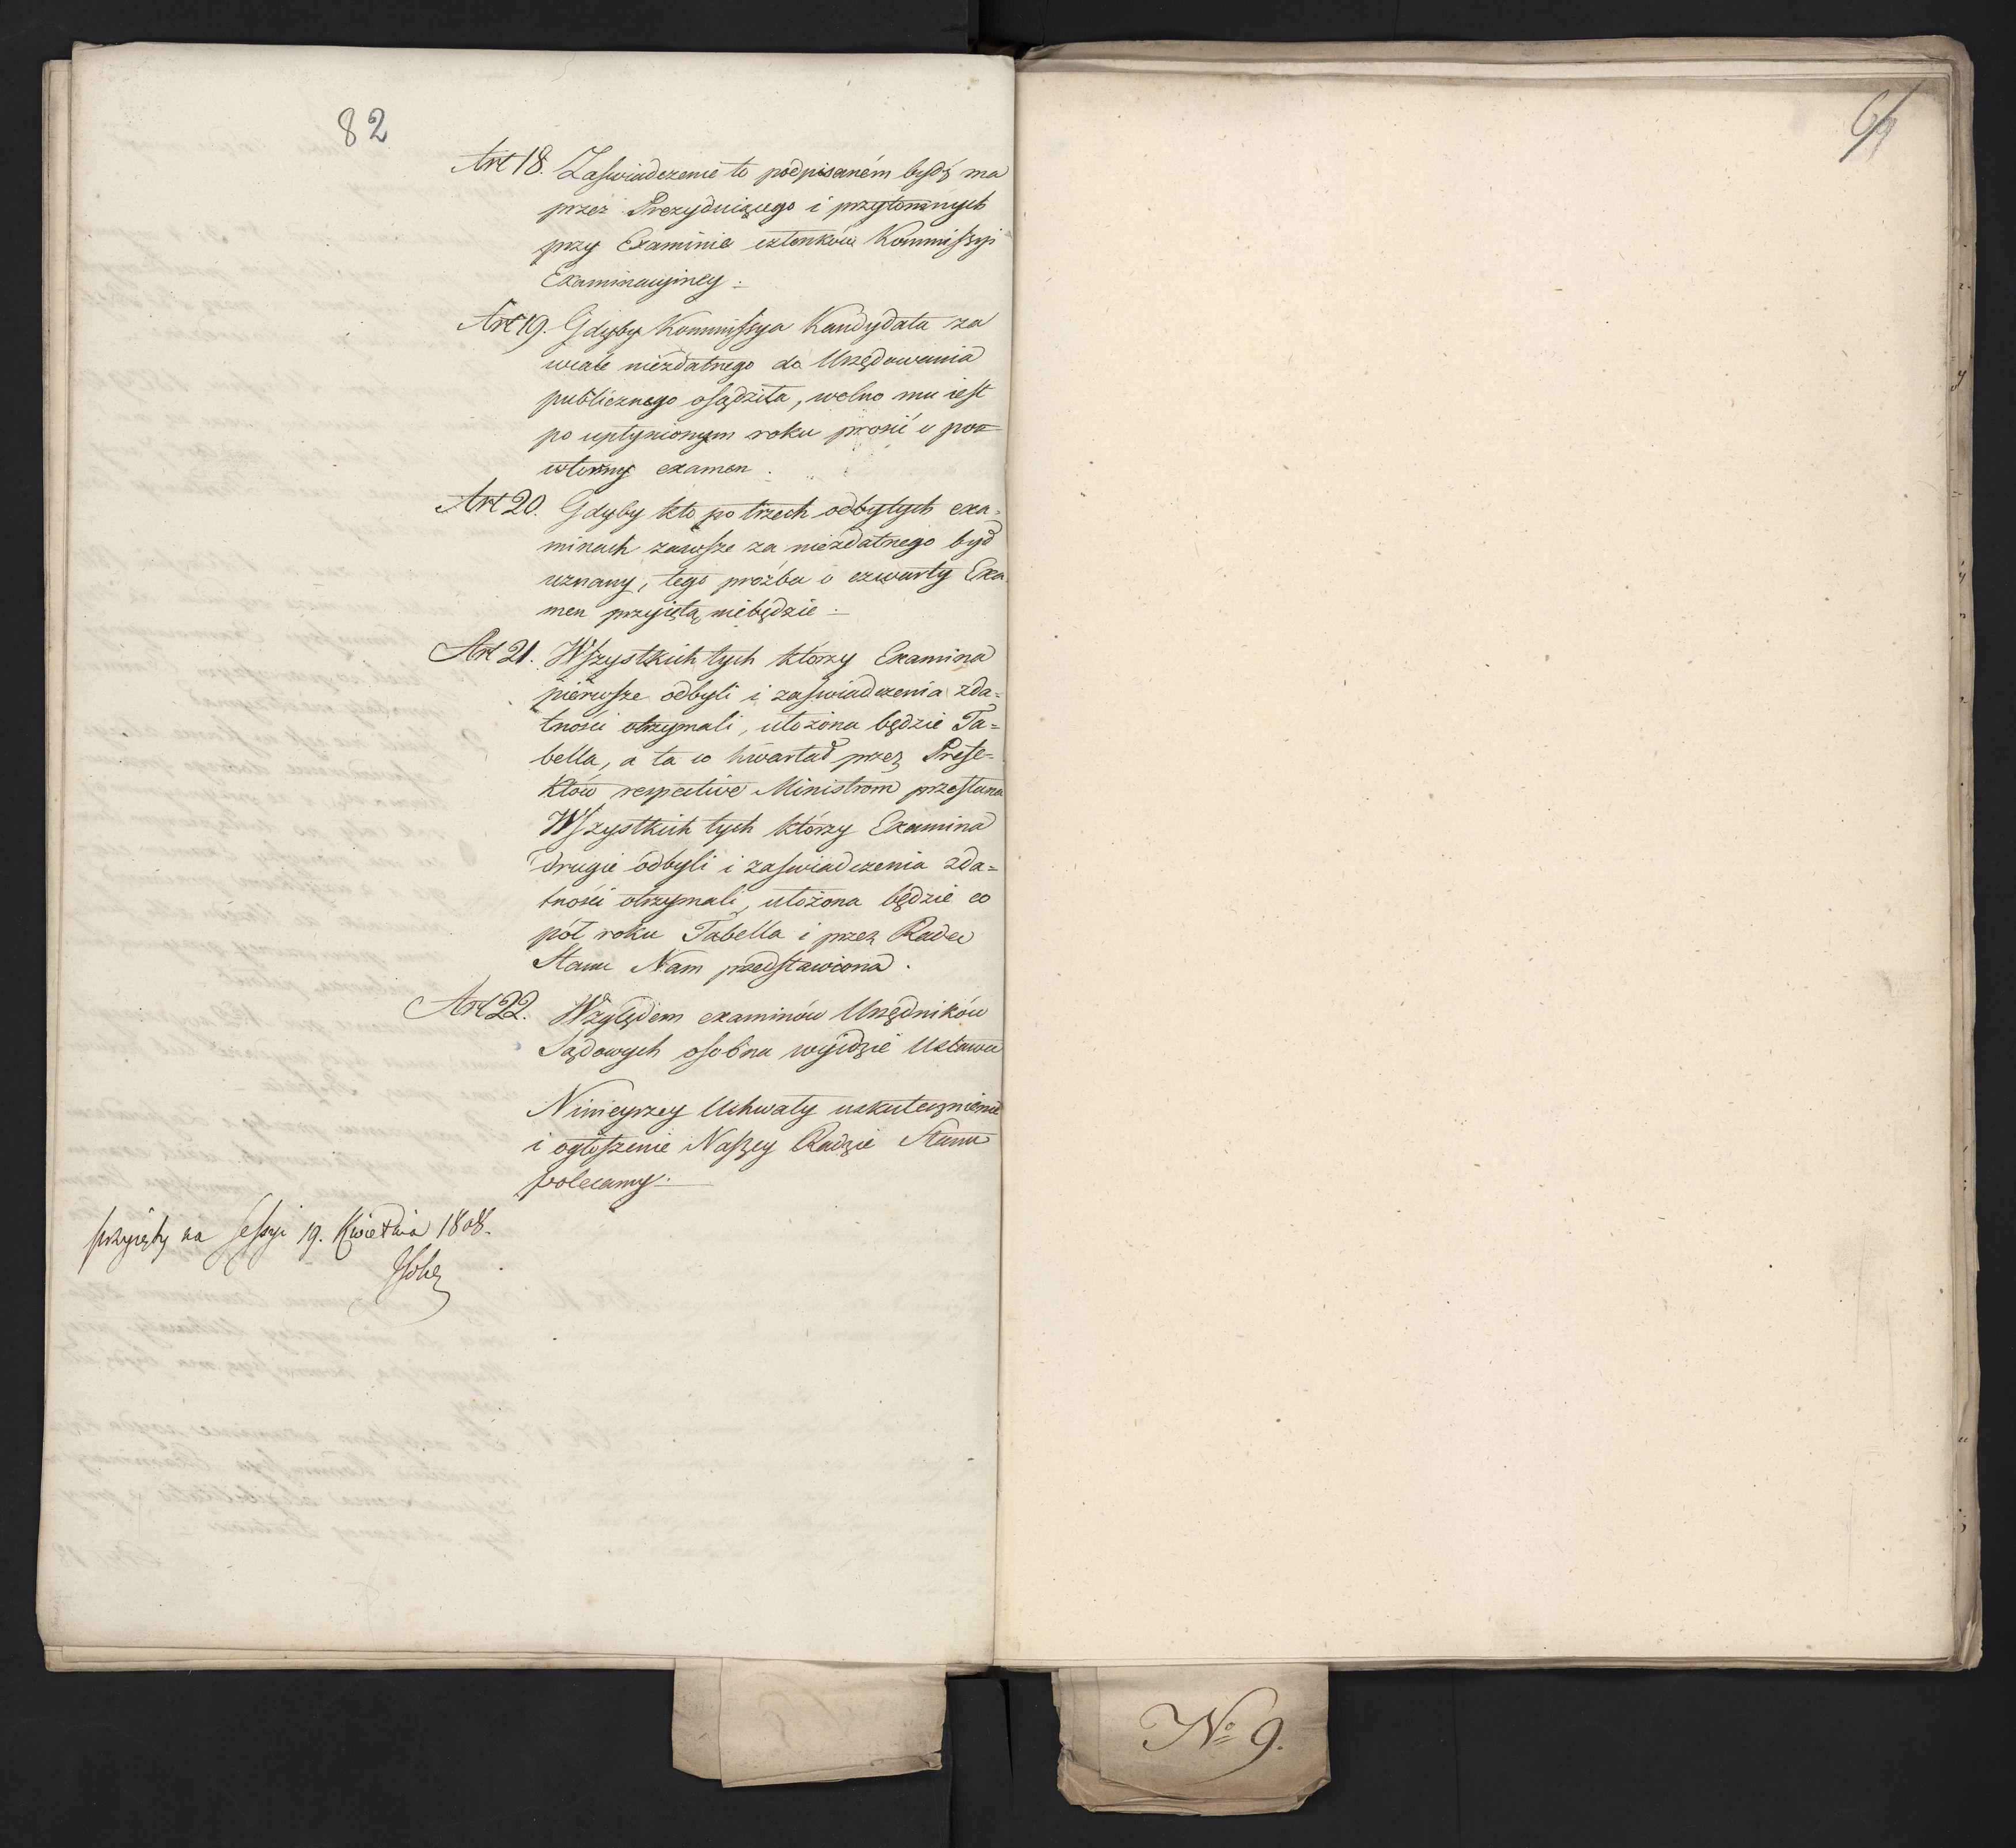 82
Art 18. Zaswiadczenie to podpisaném bydź ma
przez Prezyduiącego i przytomnych
przy Examinie członków Kommissyi
Examinacyiney.
Art 19. Gdyby Kommissya Kandydata za
wcale niezdatnego do Urzędowania
publicznego osądziła, wolno mu iest
po upłynionym roku prosić o pow=
wtórny examen.
Art 20. Gdyby kto po trzech odbytych exa=
minach zawsze za niezdatnego był
uznany, tego prozba o czwarty Exa
men przyiętą niebędzie.
Art 21. Wszystkich tych którzy Examina
pierwsze odbyli i zaswiadczenia zda=
tności otrzymali, ułożona będzie Ta=
bella, a ta co kwartał przez Prefe=
któw respective Ministrom przesłana
Wszystkich tych którzy Examina
drugie odbyli i zaswiadczenia zda=
tności otrzymali, ułożona będzie co
pół roku Tabella i przez Radę
Stanu Nam przedstawiona.
Art 22. Względem examinów Urzędników
Sądowych osobna wyidzie Ustawa
Ninieyszey Uchwały uskutecznienie
i ogłoszenie Naszey Radzie Stanu
polecamy.
przyięty na Sessyi 19. Kwietnia 1808.
No 9.